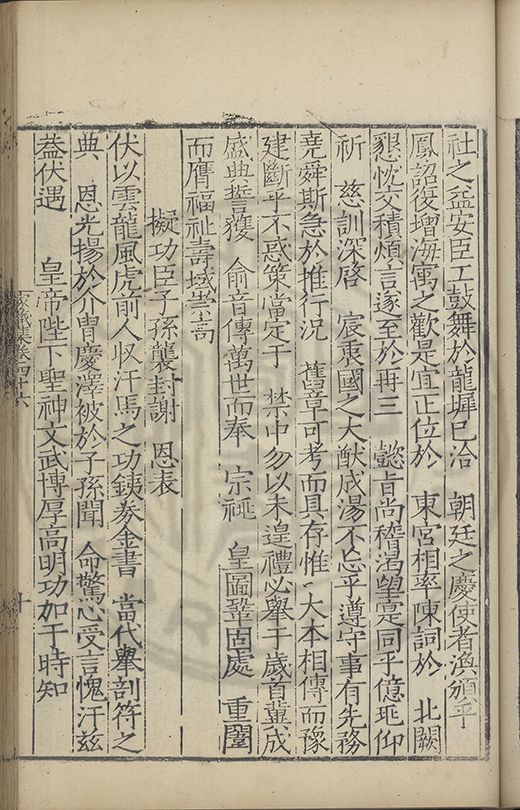 社之益安臣工鼓舞於龍墀已洽 朝廷之慶使者渙頒乎
鳳詔復增海寓之歡是宜正位於 東宮相率陳詞於 北闕
懇忱父積煩言遂至於再三 懿旨尚稽渴望寔同乎億兆仰
祈 慈訓深啓 宸衷國之大猷成湯不忘乎遵守事有先務
堯舜斯急於推行況 舊章可考而具存惟 大本相傳而豫
建斷乎不惑策當定于 禁中勿以未遑禮必舉于歲首冀成
盛典誓獲 俞音傳萬世而奉 宗祧 皇圖鞏固處 重闈
而膺福祉壽域崇高
擬功臣子孫襲封謝 恩表
伏以雲龍風虎前人收汗馬之功鐵券金書 當代舉剖符之
典 恩光揚於介胄慶澤被於子孫聞 命驚心受言愧汗茲
蓋伏遇 皇帝陛下聖神文武博厚高明功加于時知
卷四十六
十